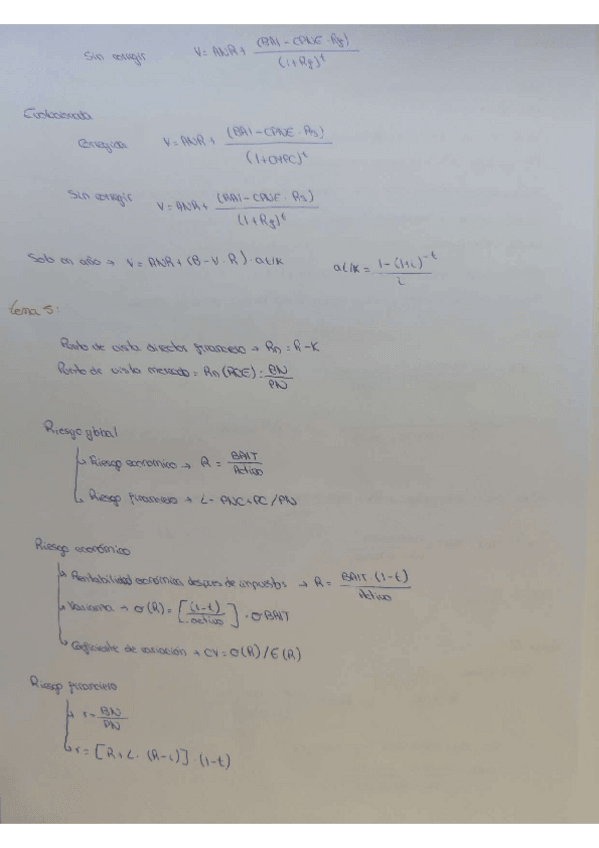 Sin corregir V = ANR + (BAI - CPNE · Rf) / (1+Rf)^t
Evolucionada
Corregida V = ANR + (BAI - CPNE · Rs) / (1+CMPC)^t
Sin corregir V = ANR + (BAI - CPNE · Rs) / (1+Rf)^t
Solo un año → V = ANR + (B - V · R) · a⌐i,k a⌐i,k = 1 - (1+i)^-t / i
Tema 5:
Punto de vista director financiero → Rn = R - K
Punto de vista mercado = Rn (ROE) = BN / PN
Riesgo global
↳ Riesgo económico → R = BAIT / Activo
↳ Riesgo financiero → L = PNC + PC / PN
Riesgo económico
↳ Rentabilidad económica despues de impuestos → R = BAIT (1-t) / Activo
↳ Varianza → σ(R) = [(1-t) / activo] · σ BAIT
↳ Coeficiente de variación → CV = σ(R) / E(R)
Riesgo financiero
↳ r = BN / PN
↳ r = [R + L · (R - i)] · (1-t)